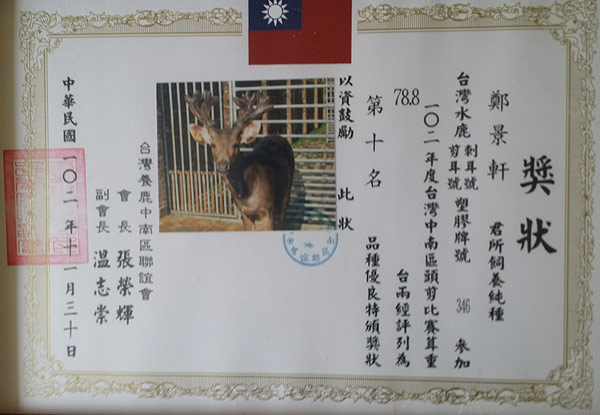 獎狀
鄭景軒 君所飼養純種
台灣水鹿 刺耳號 剪耳號 塑膠牌號 346 參加
一〇二年度台灣中南區頭剪比賽茸重
78.8 台兩經評列為
第十名 品種優良特頒獎狀
以資鼓勵 此狀
台灣養鹿中南區聯誼會
會長 張榮輝
副會長 溫志崇
中華民國一〇二年十一月三十日